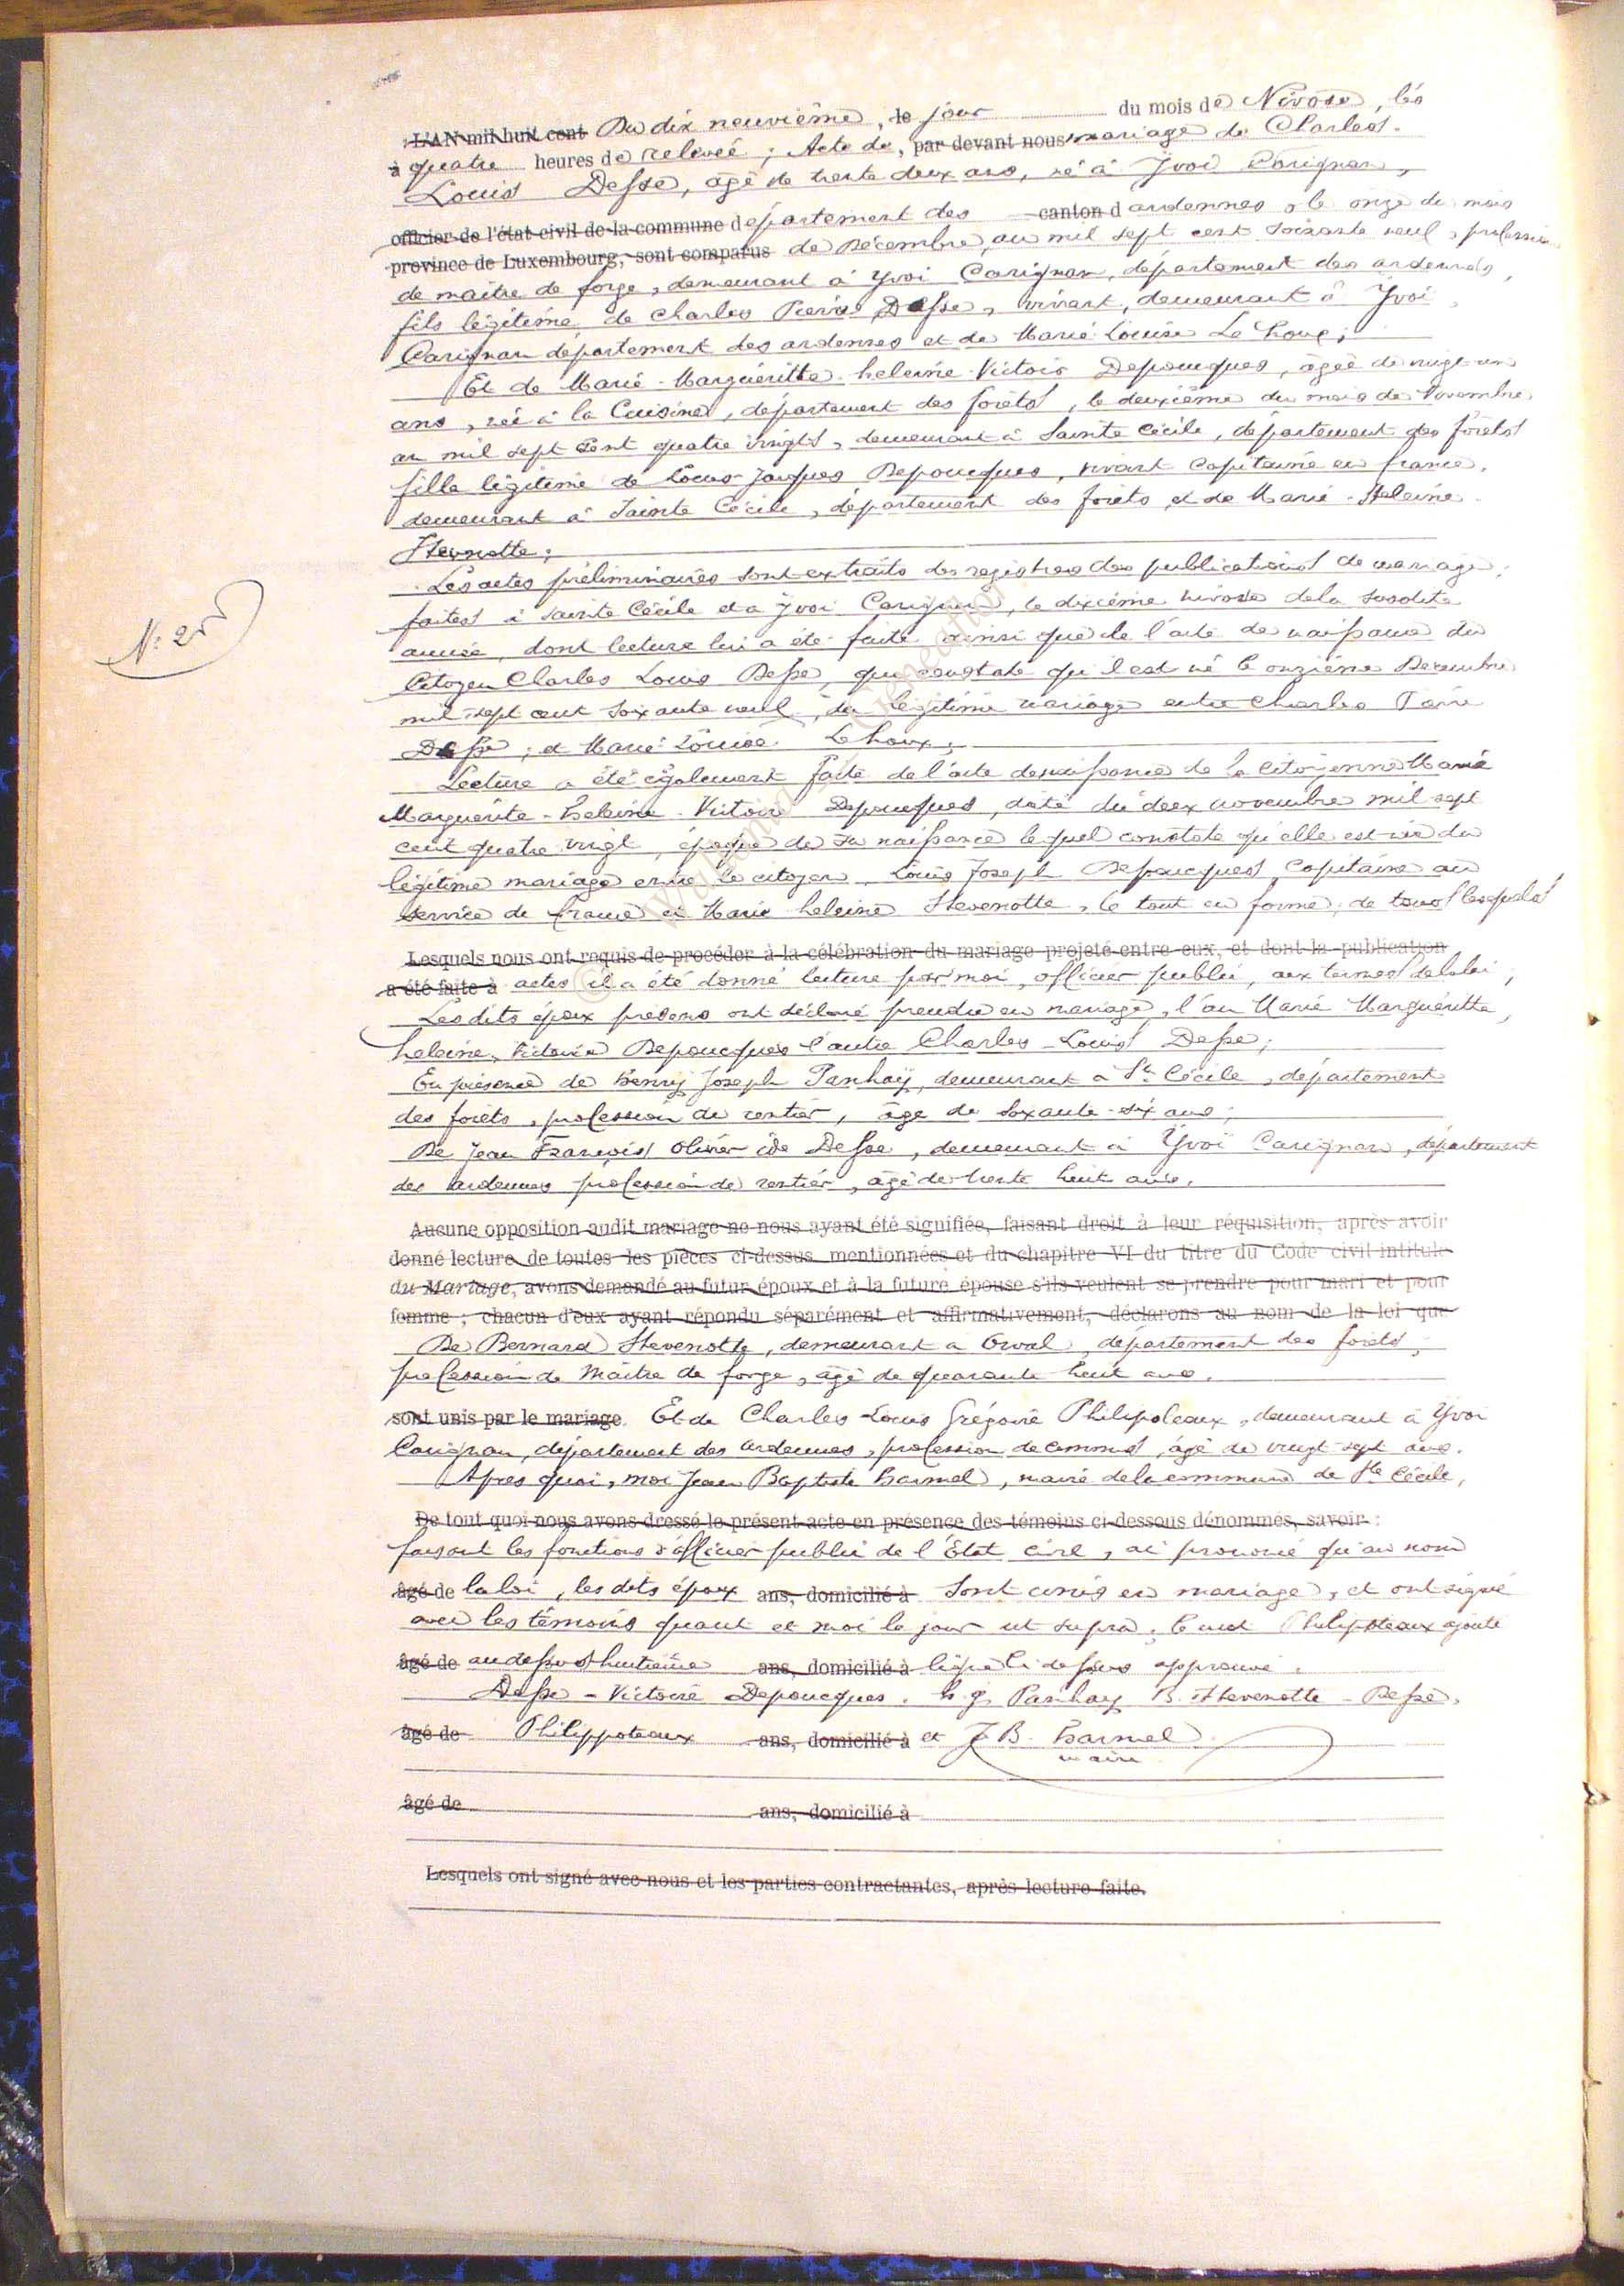 L'AN mil huit cent Du dix neuvième, le jour du mois de Nivôse, lés
à quatre heures de relevée ; Acte de, par devant nous mariage de Charles.
Louis Desse, âgé de trente deux ans, né à Yvoi Carignan,
officier de l'état civil de la commune département des canton d ardennes, le onze du mois
province de Luxembourg, sont comparus de Décembre, an mil sept cent soixante neuf, profession
de maitre de forge, demeurant à Yvoi Carignan, département des ardennes,
fils légitime de Charles Pierre Desse, vivant, demeurant à Yvoi
Carignan département des ardennes et de Marie Louise Le houx ;
Et de Marie-Margueritte-heleine-Victoir Depoucques, âgée de vingt-un
ans, née à la Cuisine, département des forêts, le deuxième du mois de Novembre
an mil sept cent quatre vingts, demeurant à Sainte Cécile, département des forêts
fille légitime de Louis-Jacques Depoucques, vivant capitaine en france,
demeurant à Sainte Cécile, département des forets, et de Marie-Heleine
Stevenotte ;
Les actes préliminaires sont extraits des registres des publications de mariage,
faites à Sainte Cécile et à Yvoi Carignan, le dixième nivose de la susdite
année, dont lecture lui a été faite ainsi que de l'acte de naissance du
Citoyen Charles Louis Desse, qui constate qu'il est né le onzième Decembre
mil sept cent soixante neuf, du légitime mariage entre Charles Pierre
Desse ; et Marie Louise Lehoux ;
Lecture a été également faite de l'acte de naissance de la Citoyenne Marie
Marguerite-heleine-Victoire Depoucques, daté du deux novembre mil sept
cent quatre vingt, époque de sa naissance le quel constate qu'elle est née du
légitime mariage entre le citoyen Louis Joseph Depoucques, capitaine au
service de france et Marie heleine Stevenotte, le tout en forme, de tous lesquels
Lesquels nous ont requis de procéder à la célébration du mariage projeté entre eux, et dont la publication
a été faite à actes il a été donné lecture par moi, officier public, aux termes de la loi ;
Les dits époux presens ont déclaré prendre en mariage, l'un Marie Margueritte,
heleine, Victoire Depoucques l'autre Charles-Louis Desse ;
En présence de henry Joseph Panhay, demeurant à Ste Cécile, département
des forets, profession de rentier, âge de soixante-six ans ;
De Jean François Olivier Desse, demeurant à Yvoi Carignan, département
des ardennes profession de rentier, âgé de trente huit ans,
Aucune opposition audit mariage ne nous ayant été signifiée, faisant droit à leur réquisition, après avoir
donné lecture de toutes les pièces ci-dessus mentionnées et du chapitre VI du titre du Code civil intitulé
du Mariage, avons demandé au futur époux et à la future épouse s'ils veulent se prendre pour mari et pour
femme ; chacun d'eux ayant répondu séparément et affirmativement, déclarons au nom de la loi que
De Bernard Stevenotte, demeurant à Orval, département des forêts,
profession de Maitre de forge, âgé de quarante huit ans,
sont unis par le mariage Et de Charles-Louis Grégoire Philippoteaux, demeurant à Yvoi
Carignan, département des ardennes, profession de commis, âgé de vingt-sept ans.
Apres quoi, moi Jean Baptiste harmel, maire de la commune de Ste Cécile,
De tout quoi nous avons dressé le présent acte en présence des témoins ci-dessous dénommés, savoir :
faisant les fonctions d'officier public de l'Etat civil, ai prononcé qu'au nom
âgé de la loi, les dits époux ans, domicilié à sont unis en mariage, et ont signé
avec les témoins et moi le jour ut supra, le mot Philippoteaux ajouté
âgé de au dessus huitième ans, domicilié à ligne ci dessus approuvé.
Desse - Victoire Depoucques. h. j. Panhay B. Stevenotte - Desse,
âgé de Philippoteaux ans, domicilié à et J. B. harmel
maire
âgé de ans, domicilié à
Lesquels ont signé avec nous et les parties contractantes, après lecture faite.